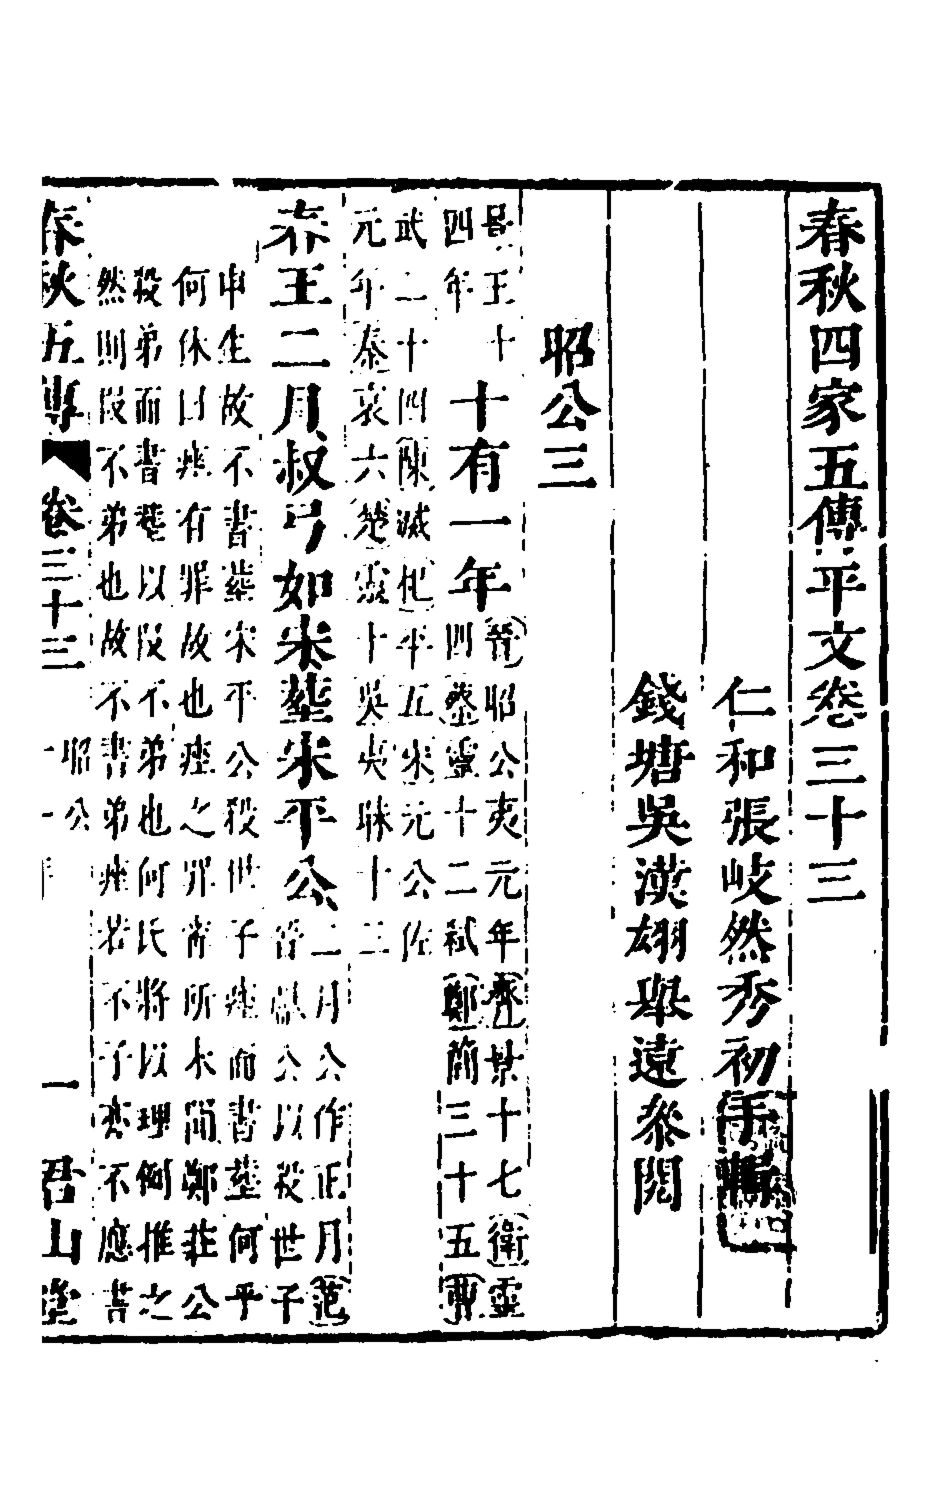 春秋四家五傳平文卷三十三
仁和張岐然秀初手輯
錢塘吳漢翊舉遠叅閱
昭公三
景王十四年
十有一年
晉昭公夷元年齊景十七衛靈
四蔡靈十二弒鄭簡三十五曹
武二十四陳滅杞平五宋元公佐
元年秦哀六楚靈十吳夷昧十三
春王二月叔弓如宋葬宋平公
二月公作正月范
甯獻公以殺世子
申生故不書葬宋平公殺世子痤而書葬何乎
何休曰痤有罪故也痤之罪甯所未聞鄭莊公
殺弟而書葬以段不弟也何氏將以理例推之
然則段不弟也故不書弟痤若不子亦不應書
春秋五傳
卷三十三
昭公
十一年
一
君山堂